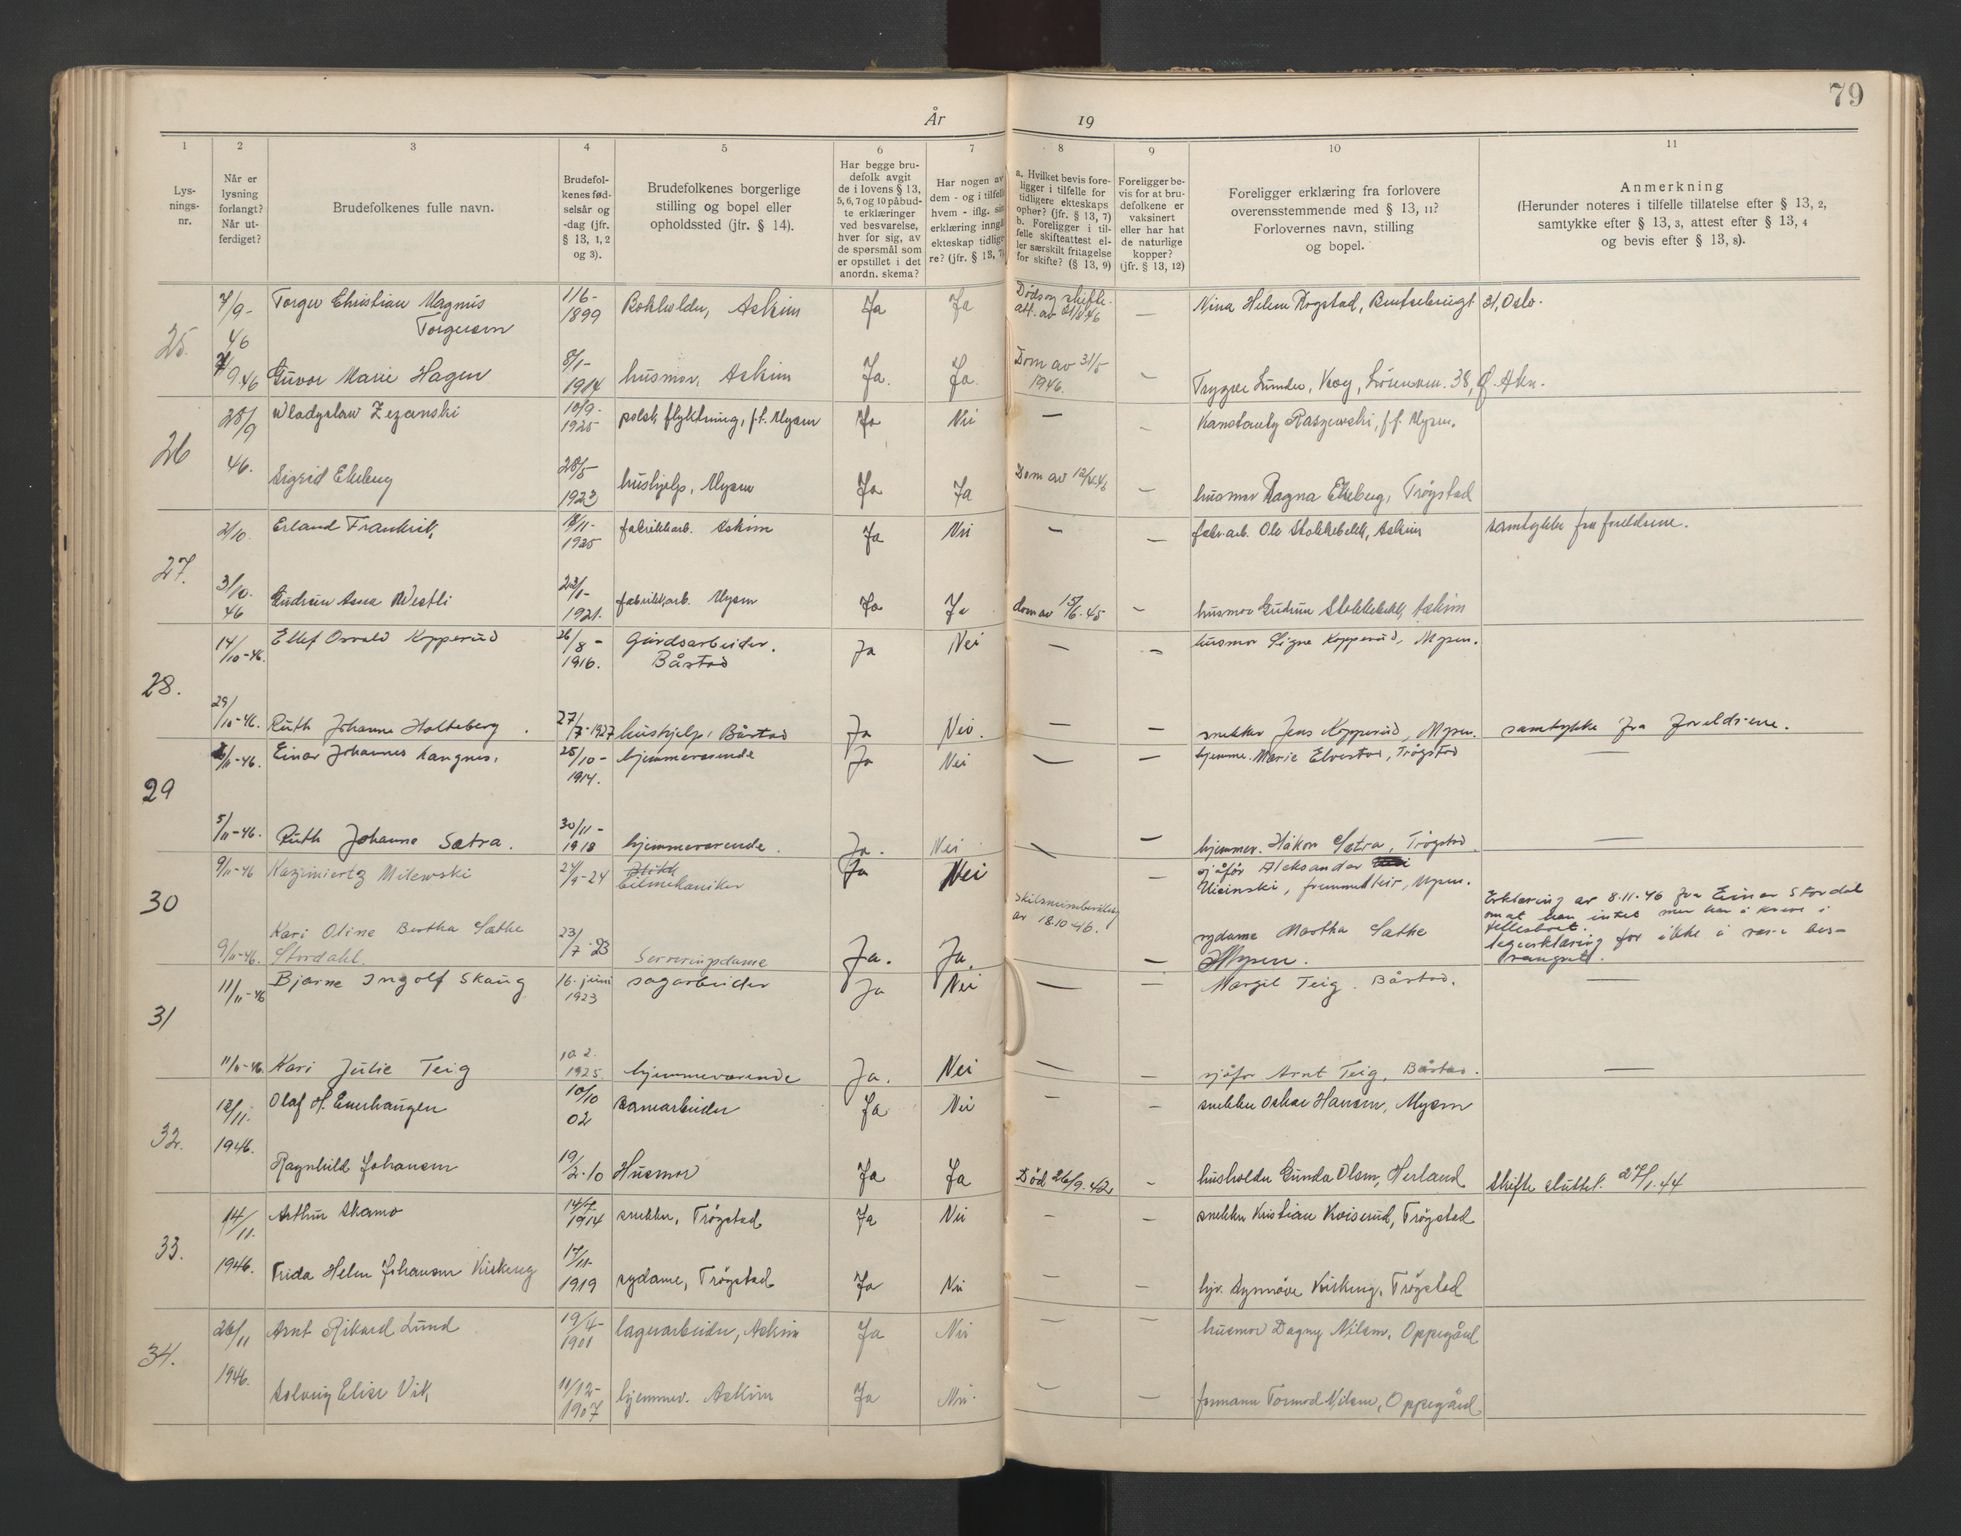 79
År 19
1 2 3 4 5 6 7 8 9 10 11
Lys-
nings-
nr.
Når er
lysning
forlangt?
Når ut-
ferdiget?
Brudefolkenes fulle navn.
Brudefol-
kenes fød-
selsår og
-dag (jfr.
§ 13, 1, 2
og 3).
Brudefolkenes borgerlige
stilling og bopel eller
opholdssted (jfr. § 14).
Har begge bru-
defolk avgit
de i lovens § 13,
5, 6, 7 og 10 påbud-
te erklæringer
ved besvarelse,
hver for sig, av
de spørsmål som
er opstillet i det
anordn. skema?
Har nogen av
dem - og i tilfelle
hvem - iflg. sin
erklæring inngåt
ekteskap tidlige-
re? (jfr. § 13, 7)
a. Hvilket bevis fore-
ligger i tilfelle for
tidligere ekteskaps
opher? (jfr. § 13, 7)
b. Foreligger i til-
felle skifteattest el-
ler særskilt fritagelse
for skifte? (§ 13, 9)
Foreligger be-
vis for at bru-
defolkene er
vaksinert
eller har hat
de naturlige
kopper?
(jfr. § 13, 12)
Foreligger erklæring fra forlovere
overensstemmende med § 13, 11?
Forlovernes navn, stilling
og bopel.
Anmerkning
(Herunder noteres i tilfelle tillatelse efter § 13, 2,
samtykke efter § 13, 3, attest efter § 13, 4
og bevis efter § 13, 8).
25. 7/9- 46 Torger Christian Magnus Torgersen 11/6- 1899 Bokholder, Askim Ja Ja Døds og skifte- att. av 21/8 46 — Nina Helene Rogstad, Bentsebrugt 31, Oslo.
7/9 46 Guvor Marie Hagen 8/1- 1914 husmor, Askim Ja. Ja. Dom av 31/5 1946. — Trygve Lunder, Sørensen. 38, Ø. Akn.
26 28/9 46. Wladyslaw Zezanski 10/9- 1925 polsk flyktning, f.l. Mysen Ja Nei — — Konstanty Raszewski, f.l. Mysen.
Sigrid Ekeberg 28/5- 1923 hushjelp, Mysen Ja Ja Dom av 12/ 46 — husmor Ragna Ekeberg, Trøgstad
27. 2/10. Erland Frankrik, 18/11- 1925 fabrikkarb. Askim Ja Nei — — fabr.arb. Ole Stokkebekk, Askim samtykke fra foreldrene.
3/10. 46 Gudrun Anna Westli 22/1- 1921. fabrikkarb. Mysen Ja Ja dom av 15/6. 45 — husmor Gudrun Stokkebekk, Askim
28. 14/10-46. Ellef Osvald Kopperud 26/8 - 1916. Gårdsarbeider. Båstad Ja Nei — — husmor Signe Kopperud, Mysen.
29/10-46. Ruth Johanne Holteberg. 27/7-1927 hushjelp, Båstad Ja Nei. — — snekker Jens Kopperud, Mysen. samtykke fra foreldrene.
29 2/11-46. Einar Johannes Langnes. 25/10- 1914. hjemmeværende Ja Nei — — hjemme. Marie Elvestad, Trøgstad —
5/11-46. Ruth Johanne Sætra. 30/11- 1918 hjemmeværende. Ja. Nei — — hjemmev. Håkon Sætra, Trøgstad. —
30 9/11-46 Kazimiertz Milewski 24/9-24 bilmekaniker Ja Nei — sjåfør Aleksander Nicinski, fremmedleir, Mysen.
9/11-46. Kari Oline Bertha Sæthe Stordahl. 23/7-23 Serveringsdame Ja. Ja. Skilsmissebevilling av 18.10.46. — sydame Martha Sæthe Mysen. Erklæring av 8.11.46 fra Einar Stordal om at han intet mer har å kreve i fellesboet. Legeerklæring for ikke å være besvangret.
31 11/11-46 Bjarne Ingolf Skaug 16. juni 1923 sagarbeider Ja Nei — — Margit Teig. Båstad. —
11/11-46. Kari Julie Teig 10.2. 1925. hjemmeværende Ja. Nei — — sjåfør Arnt Teig, Båstad. —
32. 12/11. 1946. Olaf H. Enerhaugen 10/10 02 Banearbeider Ja Nei — — snekker Oskar Hansen, Mysen
Ragnhild Johansen 19/2-10 Husmor Ja Ja Død 26/9.42 — husholder Gunda Olsen, Herland Skifte sluttet. 27/1.44
33. 14/11. 1946. Arthur Skamo 14/7 1914 snekker, Trøgstad Ja Nei — — snekker Kristian Kviserud, Trøgstad
Frida Helen Johansen Kirkeng 17/11- 1919 sydame, Trøgstad Ja Nei — — hjv. Synnøve Kirkeng, Trøgstad
34. 26/11 1946. Arnt Rikard Lund 19/4- 1901 lagerarbeider, Askim Ja Nei — — husmor Dagny Nilsen, Oppegård
Solveig Elise Vik, 11/12- 1907 hjemmev. Askim Ja Nei. — — formann Tormod Nilsen, Oppegård